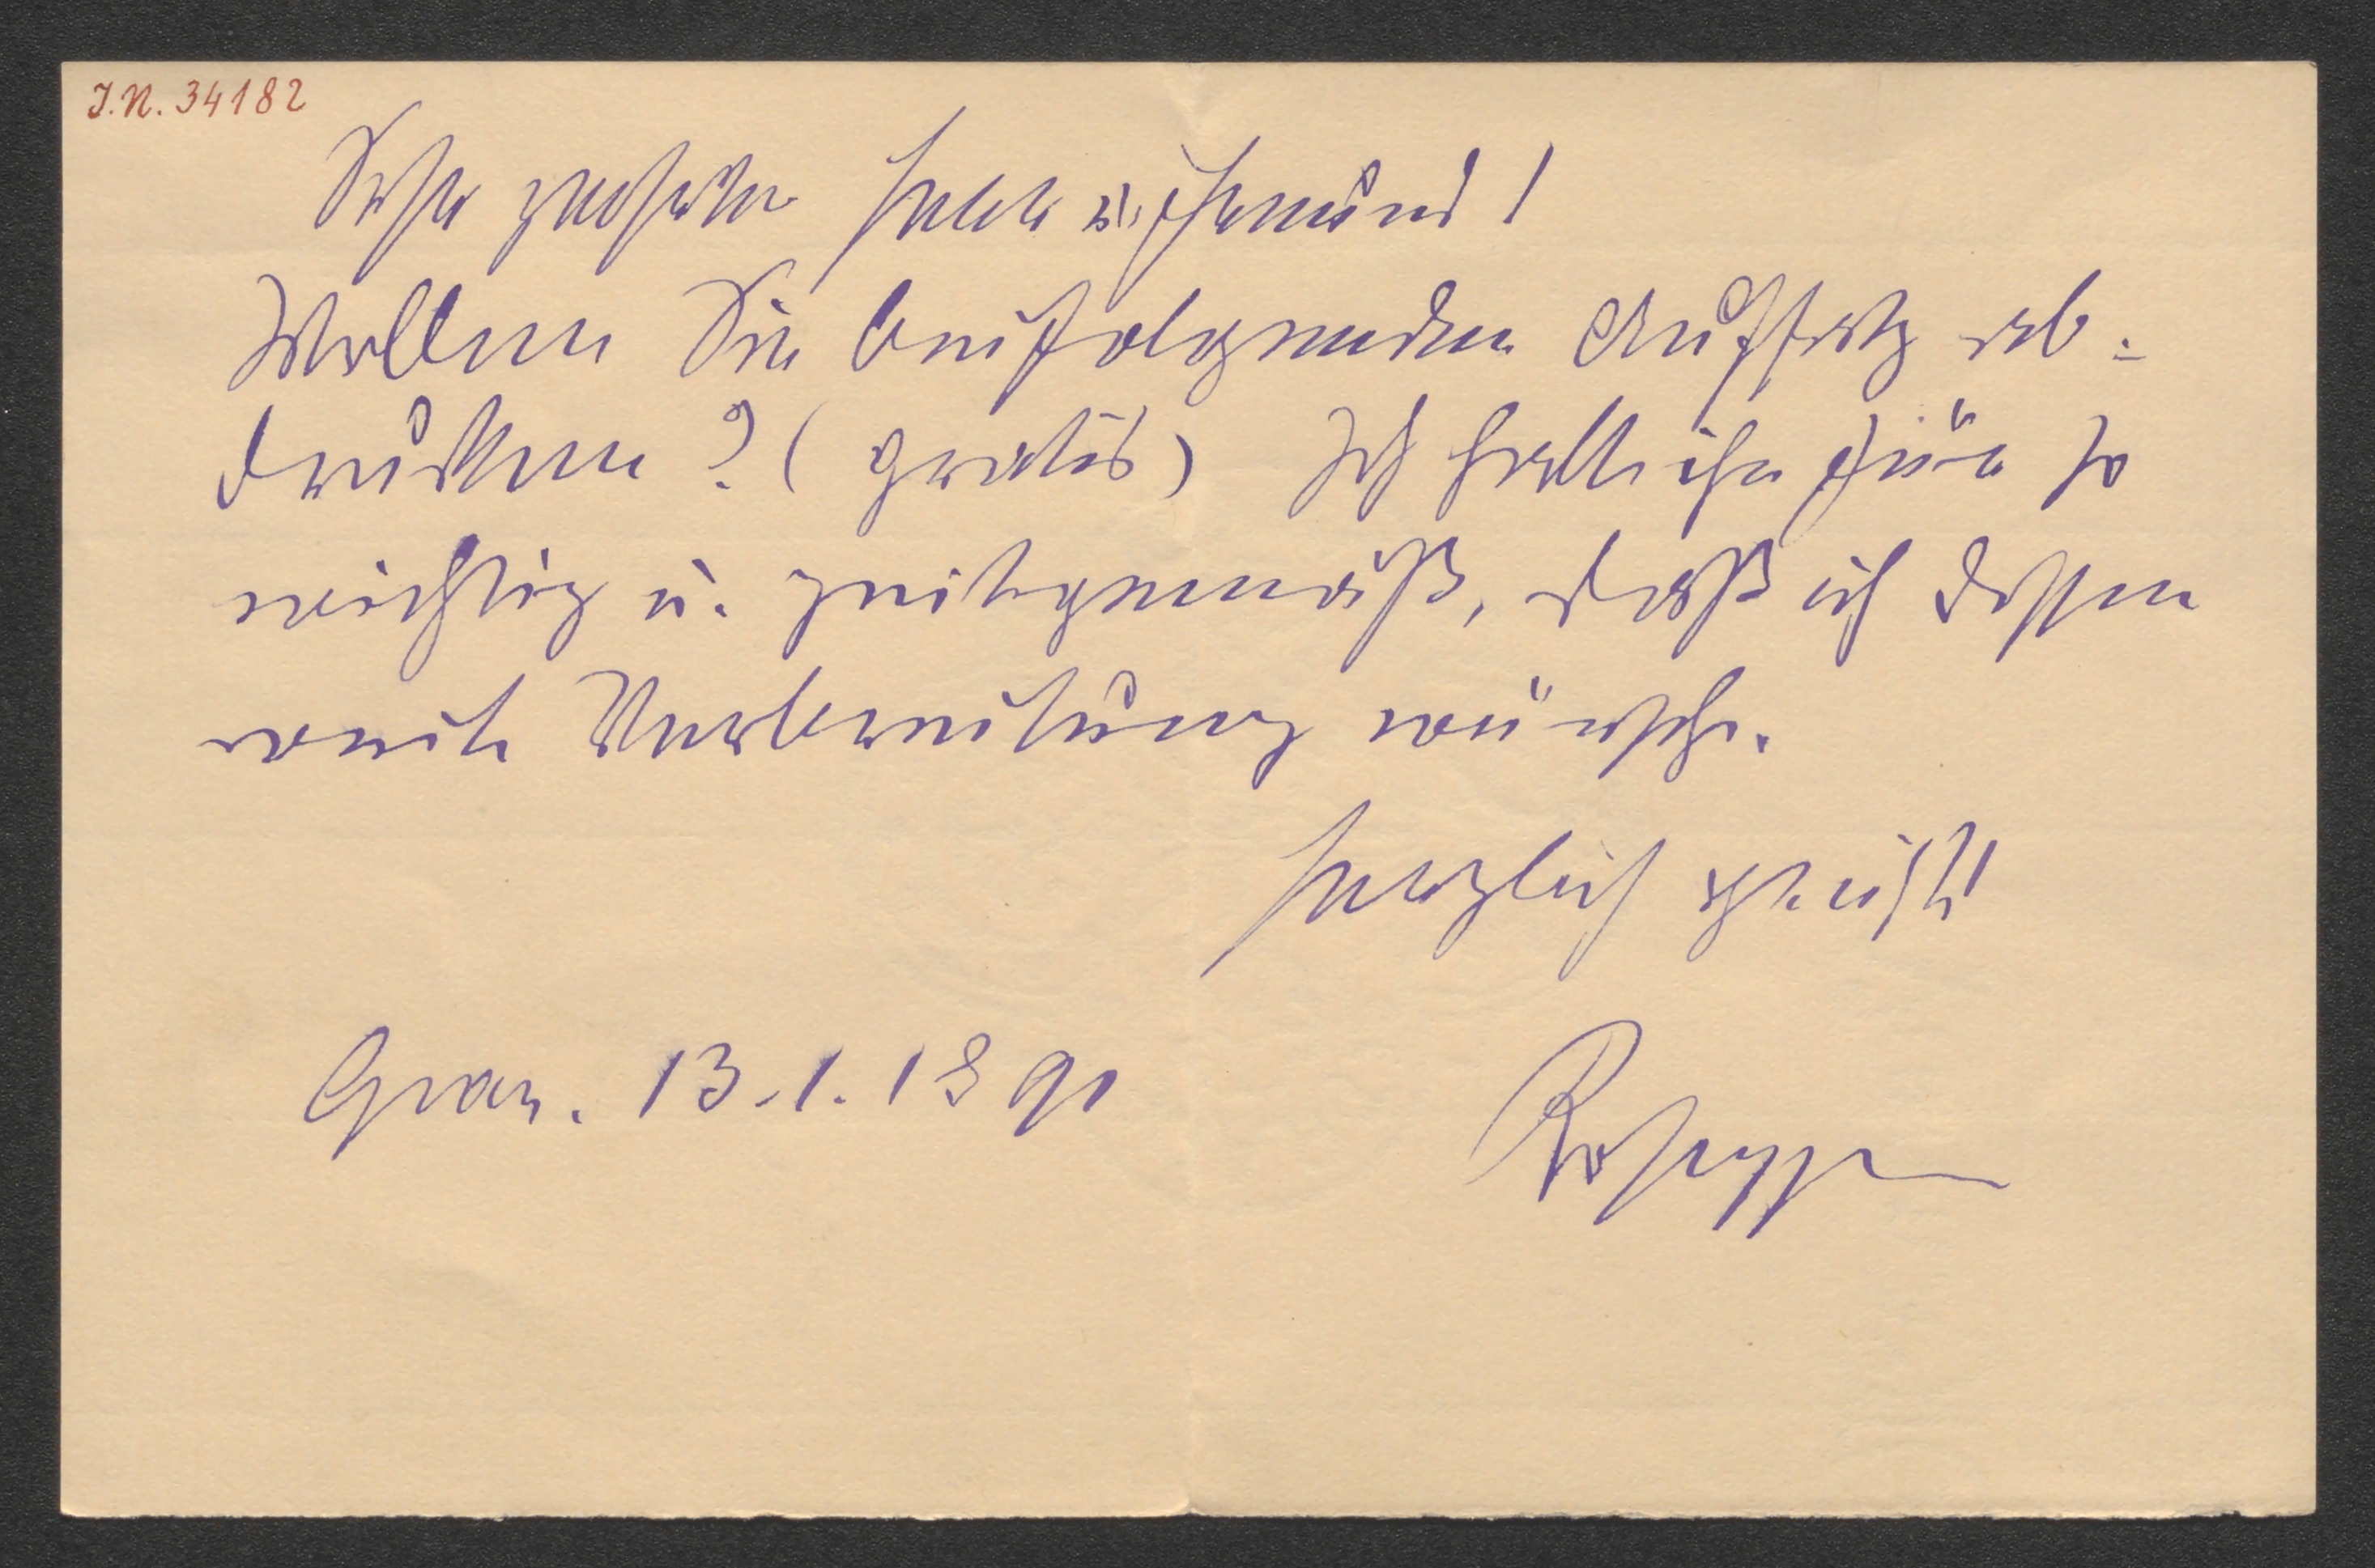 I.N. 34182
Sehr geehrter Herr u. Freund!
Wollen Sie beifolgenden Aufsatz ab-
drucken? (gratis) Ich halte ihn für so
wichtig u. zeitgemäß, daß ich dessen
weite Verbreitung wünsche.
Herzlich grüßt
Graz. 13.1.1890
Rosegger